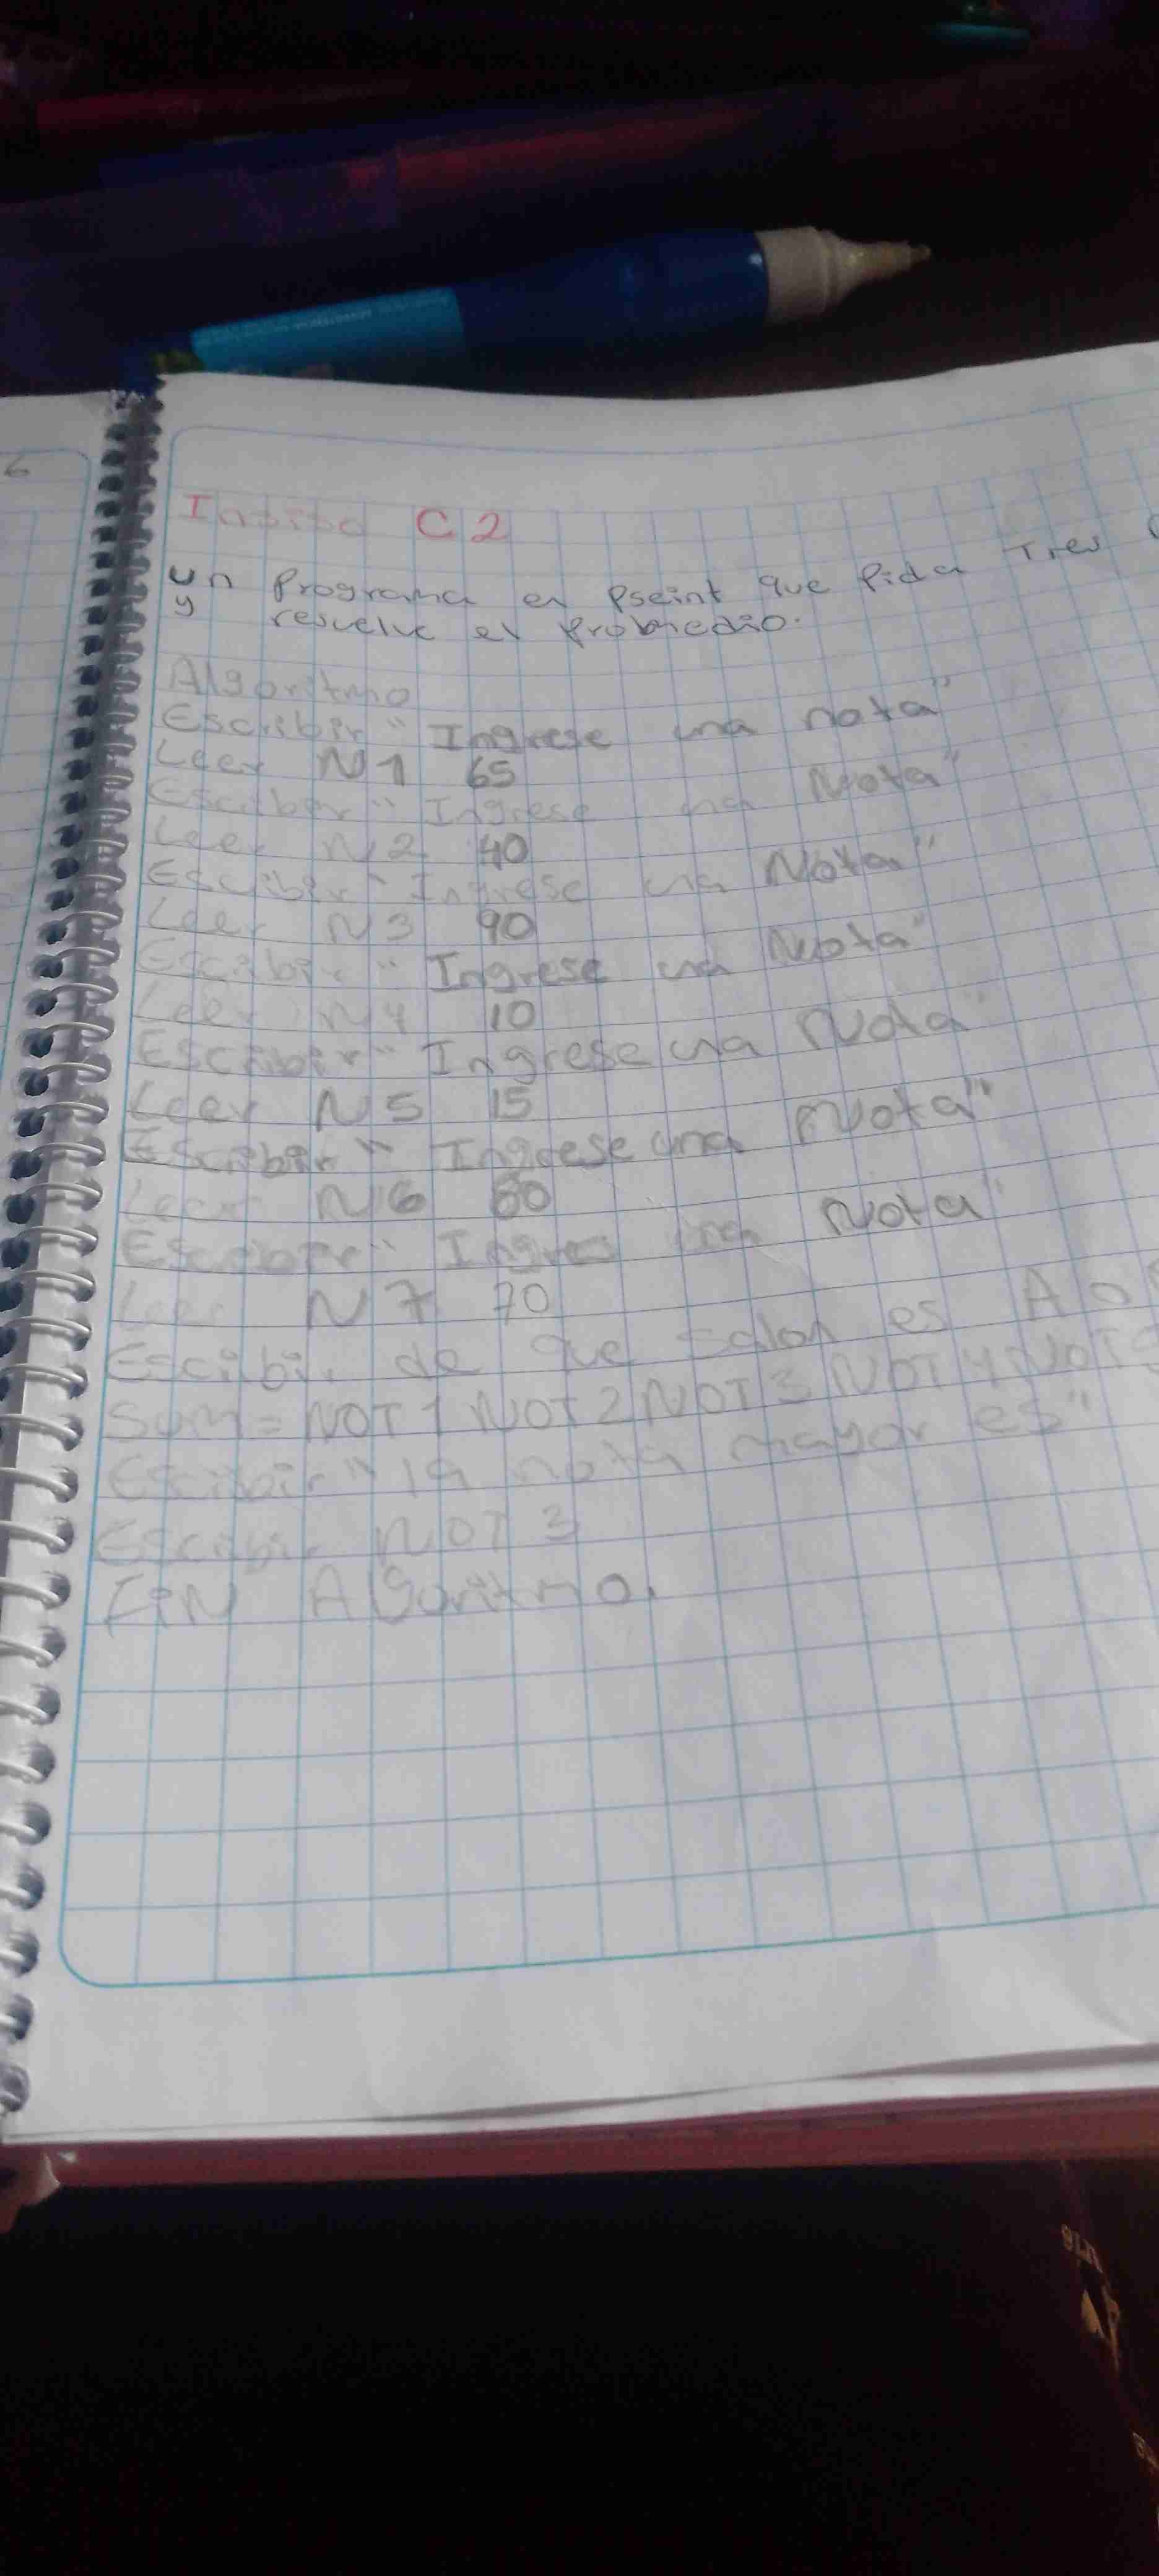 6
Inciso C2
Un Programa en Pseint que Pida Tres
y resuelve el Promedio.
Algoritmo
Escribir "Ingrese una nota"
Leer N1 65
Escriber "Ingrese una Nota"
Leer N2 40
Escribir "Ingrese una Nota"
Leer N3 90
Escribir "Ingrese una Nota"
Leer N4 10
Escribir "Ingrese una Nota"
Leer N5 15
Escribir "Ingrese una Nota"
Leer N6 60
Escribir "Ingres una Nota"
Leer N7 70
Escribir de que salon es A o
Sum = NOT 1 NOT 2 NOT 3 NOT 4 NOT 5
Escribir "la nota mayor es"
Escribir NOT 3
FiN Algoritmo.